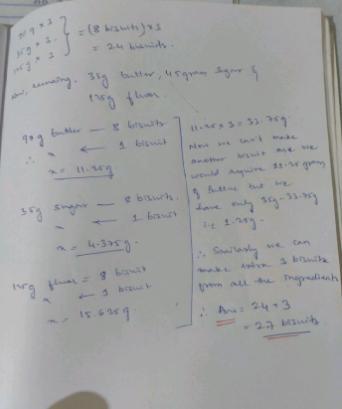 90g × 3
35g × 3
125g × 3
= (8 biscuits) × 3
= 24 biscuits.
remaining, 35g butter, 45 gram sugar &
175g flour.
90g butter — 8 biscuits
∴ x ← 1 biscuit
x = 11.25g
35g sugar — 8 biscuits.
x ← 1 biscuit
x = 4.375g.
125g flour = 8 biscuit
x ← 1 biscuit
x = 15.625g.
11.25 × 3 = 33.75g
Now we can't make
another biscuit as we
would require 11.25 gram
of butter but we
have only 35g - 33.75g
i.e 1.25g.
∴ Similarly we can
make extra 3 biscuits
from all the ingredients
∴ Ans = 24 + 3
= 27 biscuits